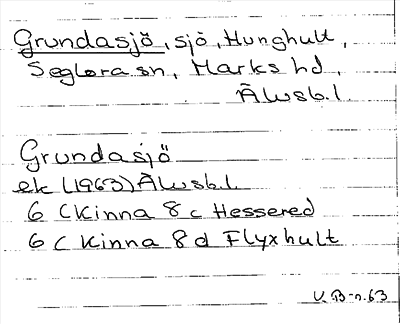 Grundasjö, sjö, Hunghult,
Seglora sn, Marks hd,
Älvsb.l
Grundasjö
ek (1963) Älvsb.l.
6 C Kinna 8 c Hessered
6 C Kinna 8 d Flyxhult
V. B-n. 63